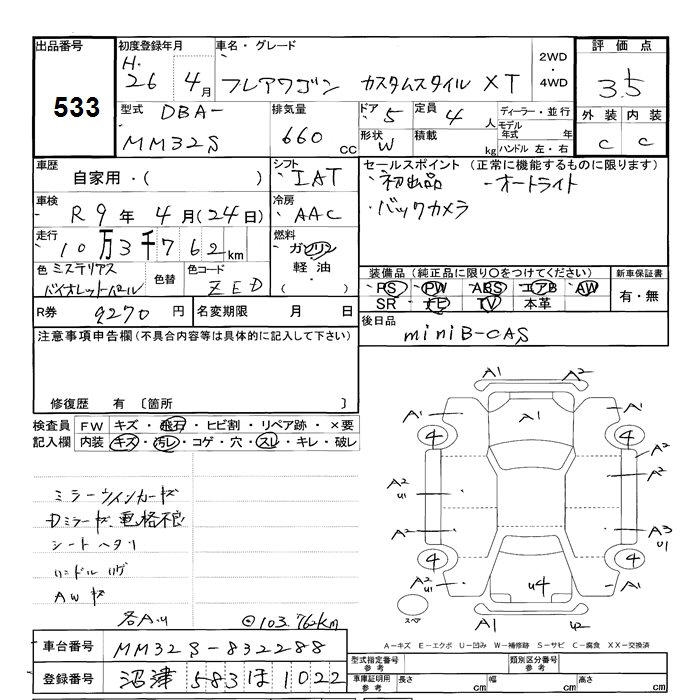 出品番号 初度登録年月 車名・グレード 2WD・4WD 評価点
533 H. 26年 4月 フレアワゴン カスタムスタイル XT 3.5
型式 DBA- 排気量 ドア 5 定員 4人 ディーラー・並行 外装 内装
MM32S 660cc 形状 W 積載 kg モデル年式 年 ハンドル 左・右 C C
車歴 自家用・( ) シフト IAT セールスポイント (正常に機能するものに限ります)
車検 R9年 4月(24日) 冷房 AAC ・初出品 ・オートライト
・バックカメラ
走行 10万3千762km 燃料 ガソリン・軽油・( )
色 ミステリアスバイオレットパール 色替 色コード ZED
装備品 (純正品に限り○をつけてください) 新車保証書
PS・PW・ABS・エアB・AW 有・無
SR ナビ TV 本革
R券 9270円 名変期限 月 日 後日品 miniB-CAS
注意事項申告欄(不具合内容等は具体的に記入して下さい)
修復歴 有 〔箇所 〕
検査員記入欄 FW キズ・飛石・ヒビ割・リペア跡・×要
内装 キズ・汚レ・コゲ・穴・スレ・キレ・破レ
ミラーウインカーキズ
Dミラーキズ、電格不良
シートヘタリ
ハンドル
AWキズ
各Aリ ◎103.762km
A1 A2
A1 A1 A1
4 4
A2 U1 A2
A2
A2 A3 U1
4 4
A2 U1 U4 A1
スペア A1 U2
A-キズ E-エクボ U-凹み W-補修跡 S-サビ C-腐食 XX-交換済
車台番号 MM32S-832288
登録番号 沼津 583 ほ 1022
型式指定番号 参考 類別区分番号 参考
車庫証明用 参考 長さ cm 幅 cm 高さ cm